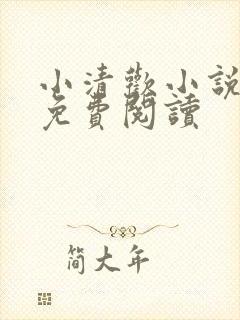 小清歡小說
免費閱讀
簡大年